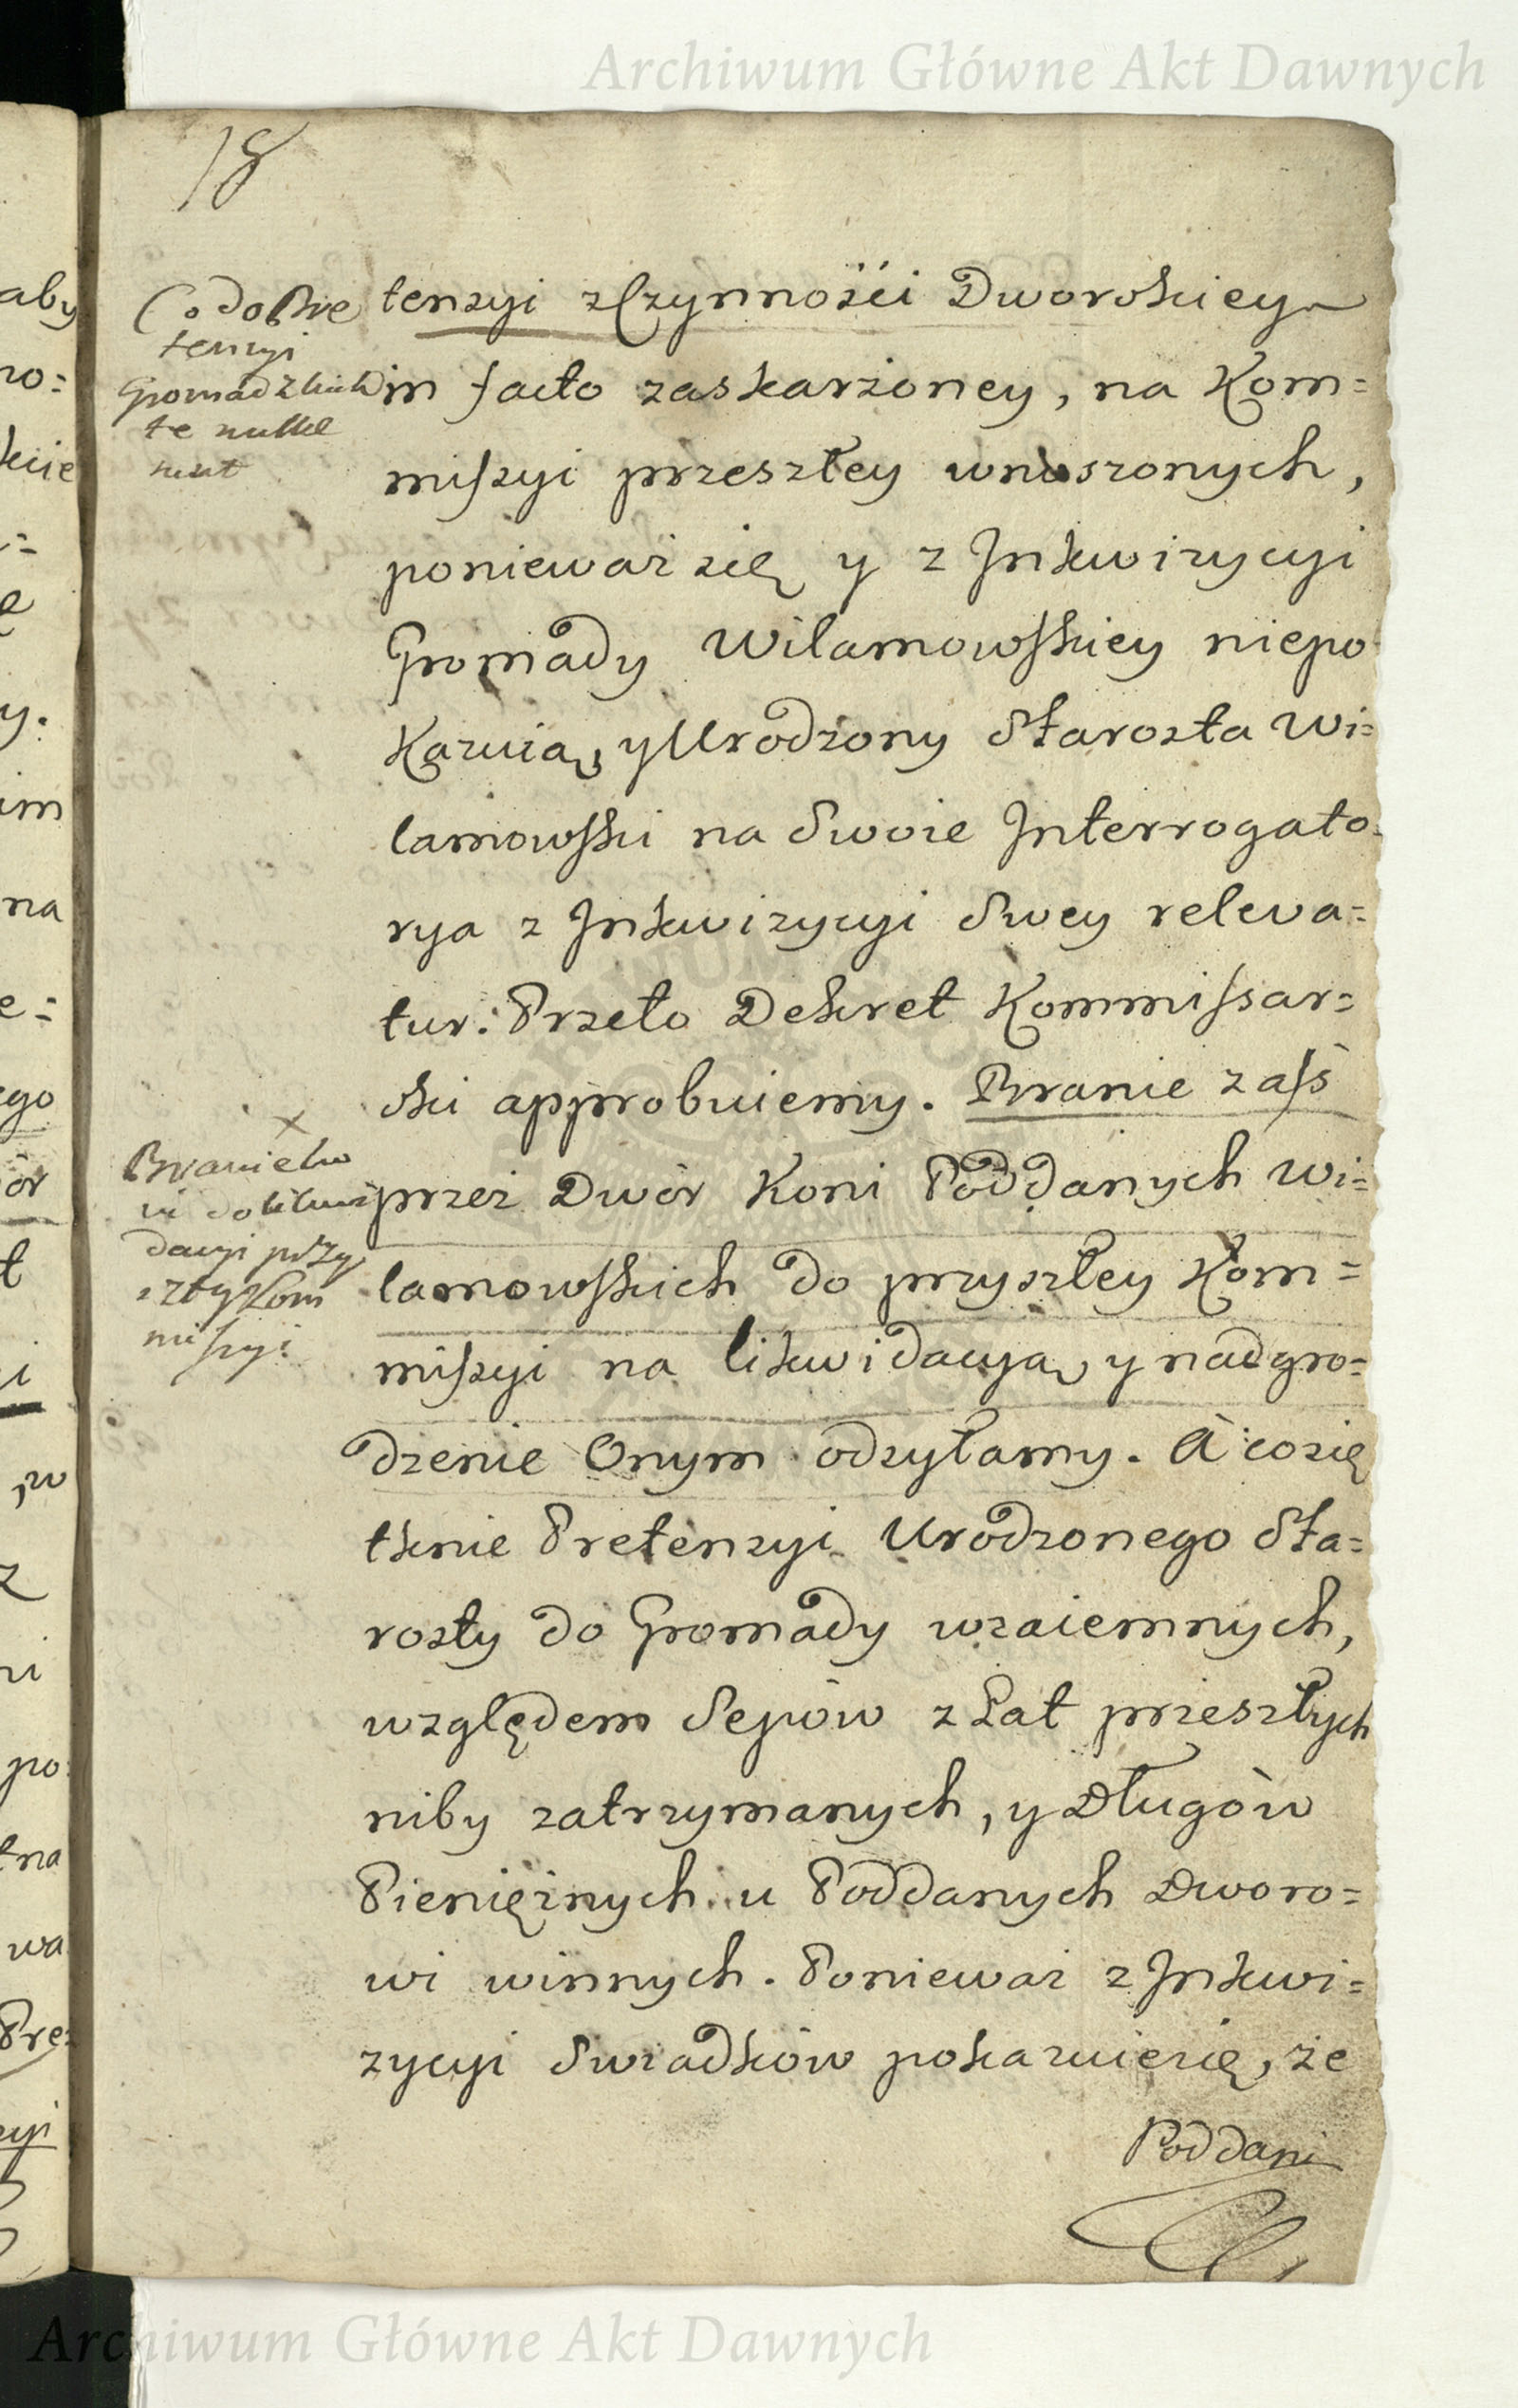 Archiwum Główne Akt Dawnych
18
tenzyi z Czynności Dworskiey
in facto zaskarżoney, na Kom=
miszyi przeszłey wnoszonych,
ponieważ się y z Inkwizycyi
Gromady Wilamowskiey niepo
kazuią, y Urodzony Starosta Wi=
lamowski na Swoie Interrogato=
rya z Inkwizycyi Swey releva=
tur. Przeto Dekret Kommissar=
ski approbuiemy. Branie zaś
przez Dwór Koni Poddanych Wi=
lamowskich do przyszłey Kom=
miszyi na likwidacyą y nadgro=
dzenie Onym odsyłamy. A co się
tknie Pretenzyi Urodzonego Sta=
rosty do Gromady wzaiemnych,
względem Sepów z Lat przeszłych
niby zatrzymanych, y Długów
Pieniężnych u Poddanych Dworo=
wi winnych. Ponieważ z Inkwi=
zycyi Swiadków pokazuie się, że
Poddani
Co do Pre
tensyi
Gromadzkich
te nullae
sunt
Branie ko
ni do likwi
dacyi przy
szłey Kom
miszyi
aby
ro=
kie
y.
im
na
e=
ego
ór
w
z
po
tna
wa
Pre=
cyi
Archiwum Główne Akt Dawnych